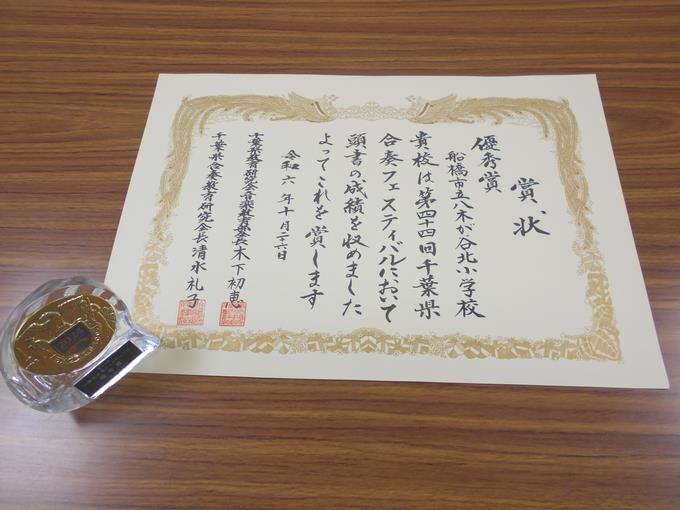 賞状
優秀賞
船橋市立八木が谷北小学校
貴校は第四十四回千葉県
合奏フェスティバルにおいて
頭書の成績を収めました
よってこれを賞します
令和六年十月二十六日
千葉県教育研究会音楽教育部会長木下初恵
千葉県合奏教育研究会長清水礼子